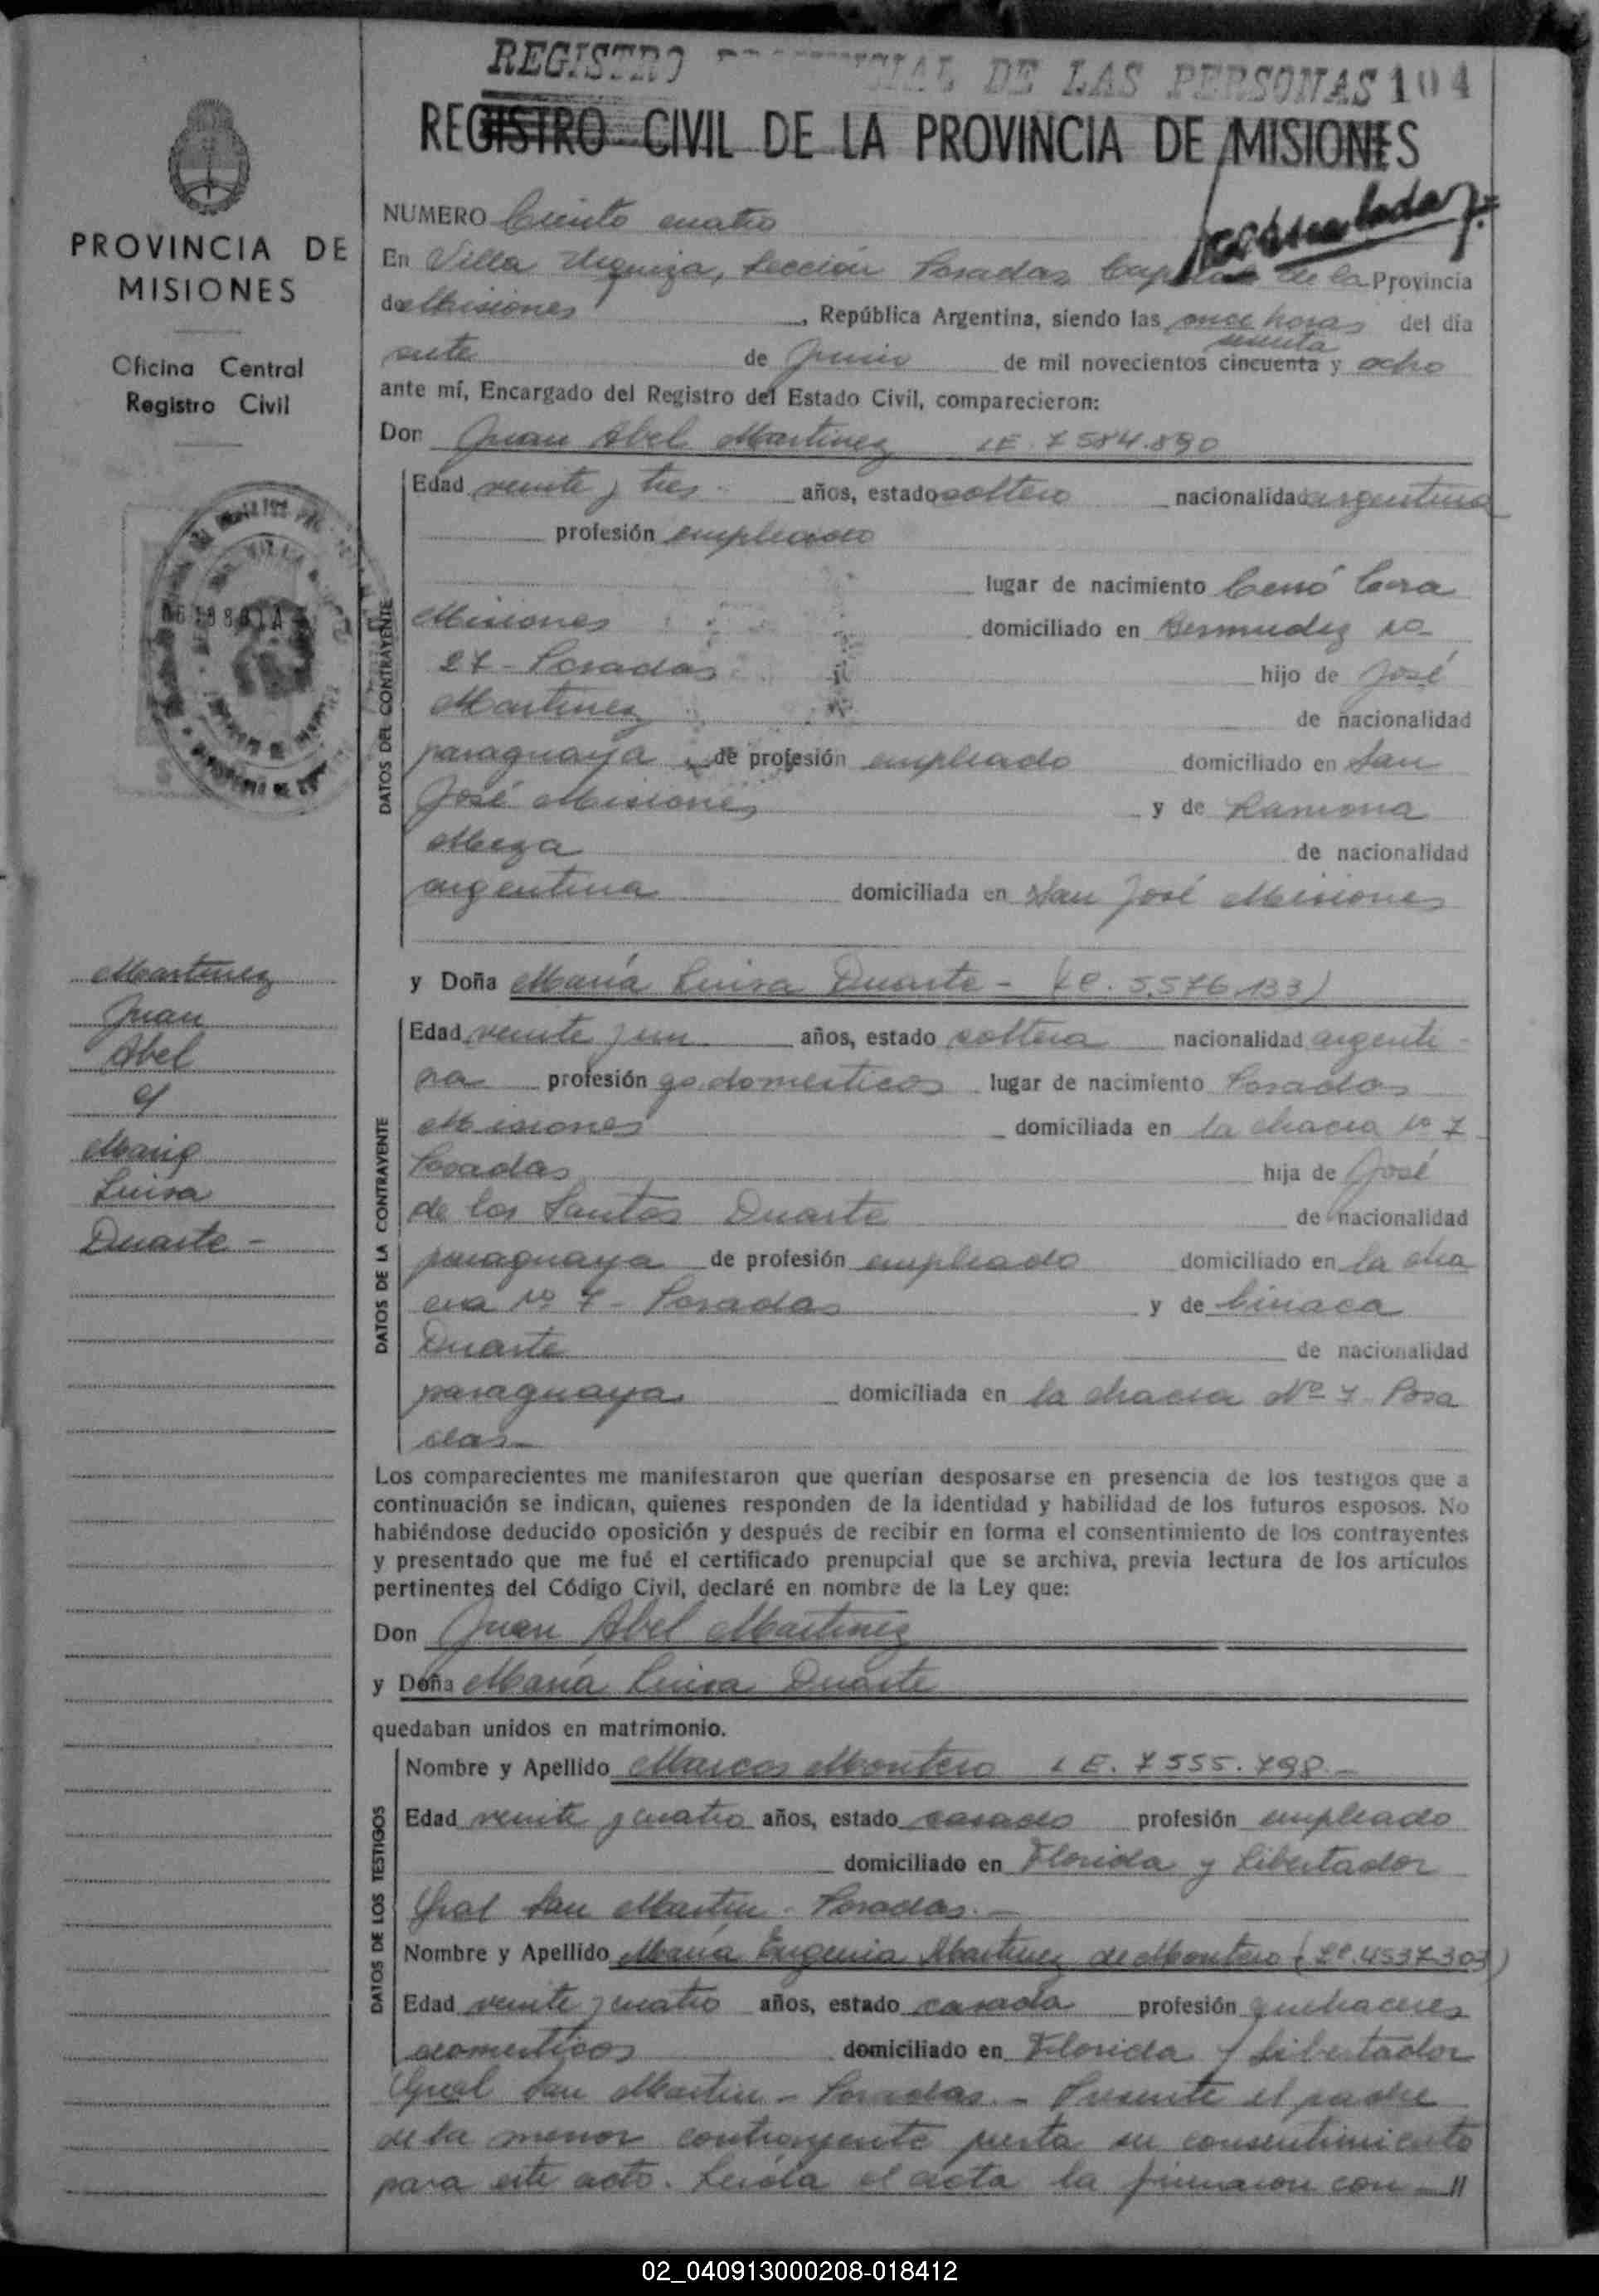 REGISTRO PROVINCIAL DE LAS PERSONAS 104
REGISTRO CIVIL DE LA PROVINCIA DE MISIONES
PROVINCIA DE
MISIONES
Oficina Central
Registro Civil
Martinez
Juan
Abel
y
Maria
Luisa
Duarte -
NUMERO Ciento cuatro
En Villa Urquiza, Sección Posadas Capital de la Provincia
de Misiones, República Argentina, siendo las once horas del día
sesenta
siete de Junio de mil novecientos cincuenta y ocho
ante mí, Encargado del Registro del Estado Civil, comparecieron:
Don Juan Abel Martinez LE. 7584.890
DATOS DEL CONTRAYENTE
Edad veinte y tres años, estado soltero nacionalidad argentina
profesión empleado
lugar de nacimiento Cerró Cora
Misiones domiciliado en Bermudez no
27 - Posadas hijo de José
Martinez de nacionalidad
paraguaya de profesión empleado domiciliado en San
José Misiones y de Ramona
Meza de nacionalidad
argentina domiciliada en San José Misiones
y Doña María Luisa Duarte - (LC. 5.576.133)
DATOS DE LA CONTRAYENTE
Edad veinte y un años, estado soltera nacionalidad argenti-
na profesión qs. domesticos lugar de nacimiento Posadas
Misiones domiciliada en la chacra no 7
Posadas hija de José
de los Santos Duarte de nacionalidad
paraguaya de profesión empleado domiciliado en la cha
cra no 7 - Posadas y de
Duarte de nacionalidad
paraguaya domiciliada en la chacra Nº 7 Posa
das -
Los comparecientes me manifestaron que querían desposarse en presencia de los testigos que a
continuación se indican, quienes responden de la identidad y habilidad de los futuros esposos. No
habiéndose deducido oposición y después de recibir en forma el consentimiento de los contrayentes
y presentado que me fué el certificado prenupcial que se archiva, previa lectura de los artículos
pertinentes del Código Civil, declaré en nombre de la Ley que:
Don Juan Abel Martinez
y Doña María Luisa Duarte
quedaban unidos en matrimonio.
DATOS DE LOS TESTIGOS
Nombre y Apellido Marcos Montero LE. 7555.798.-
Edad veinte y cuatro años, estado casado profesión empleado
domiciliado en Florida y Libertador
Gral San Martin - Posadas.-
Nombre y Apellido María Eugenia Martinez de Montero (LC. 4537303)
Edad veinte y cuatro años, estado casada profesión quehaceres
domesticos domiciliado en Florida y Libertador
Gral San Martin - Posadas.- Presente el padre
de la menor contrayente presta su consentimiento
para este acto. Leida el acta la firmaron con - //
02_040913000208-018412